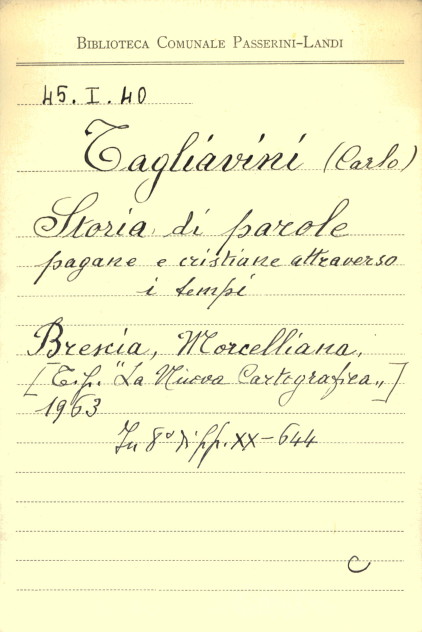 BIBLIOTECA COMUNALE PASSERINI-LANDI
45. I. 40
Tagliavini (Carlo)
Storia di parole
pagane e cristiane attraverso
i tempi
Brescia, Morcelliana,
[T.p. "La Nuova Cartografica„]
1963
In 8° di pp. XX-644
C